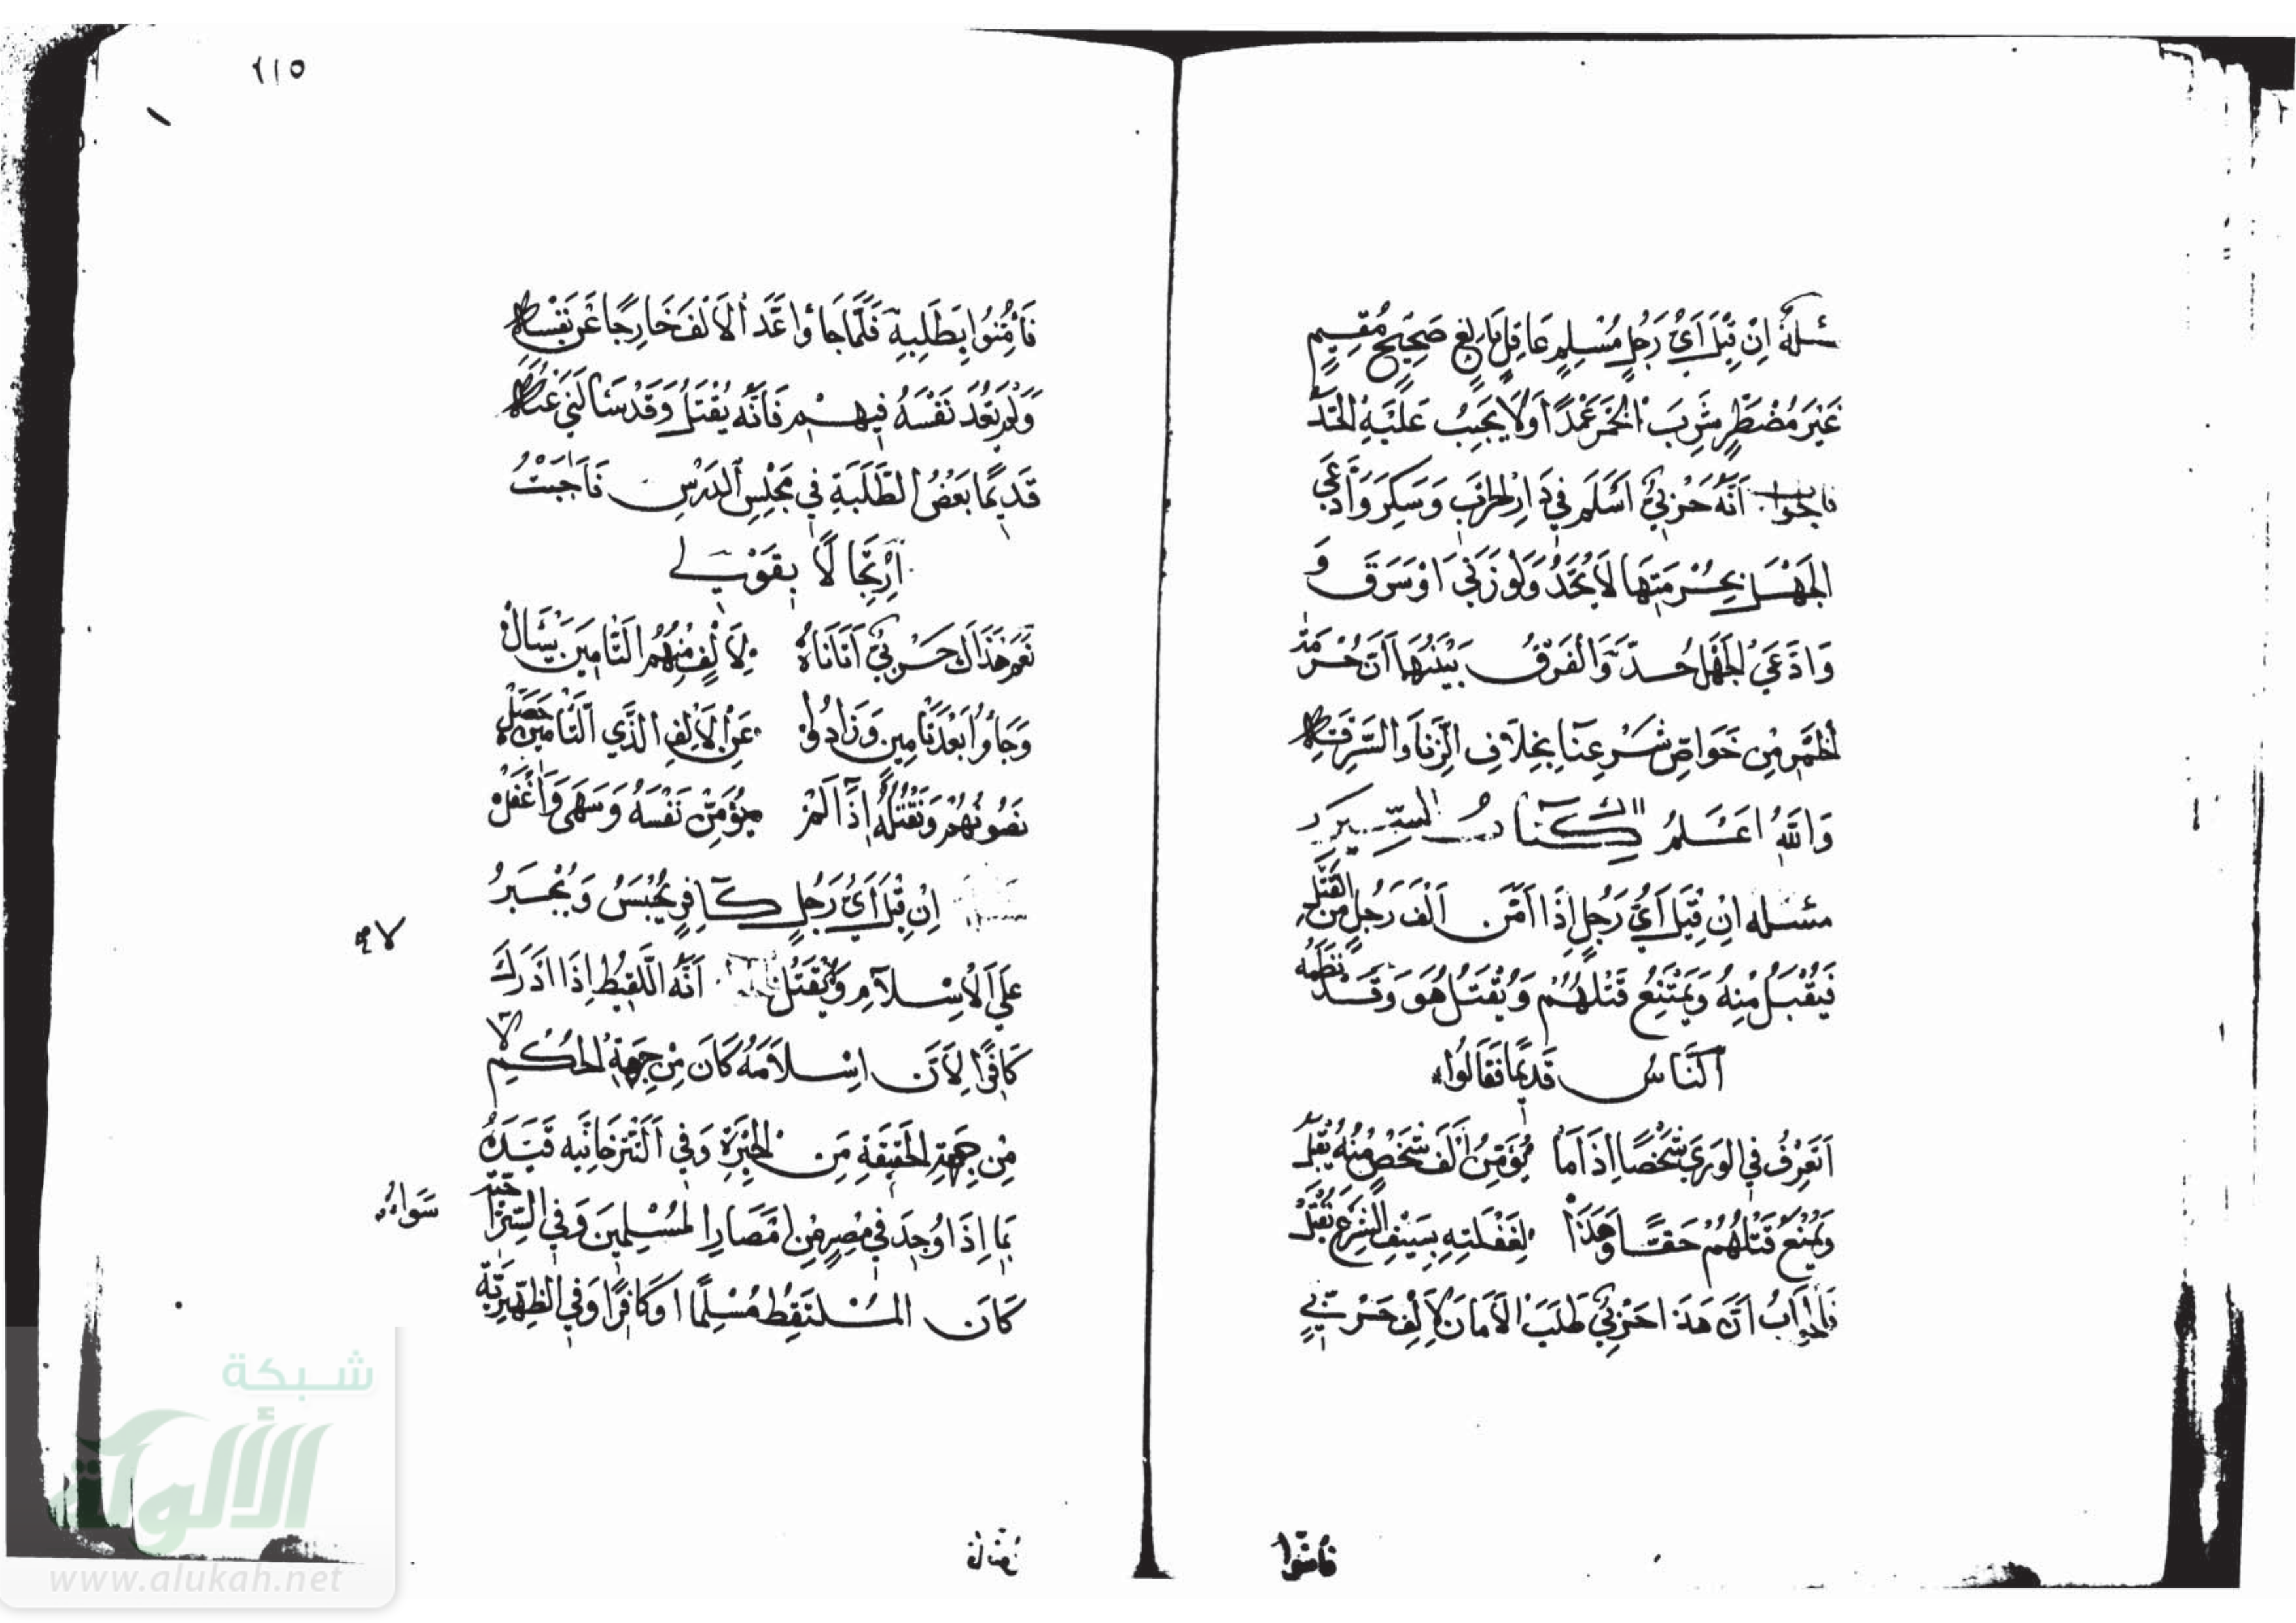 مسئلة اِنْ قِيْلَ اَيُّ رَجُلٍ مُسْلِمٍ عَاقِلٍ بَالِغٍ صَحِيْحٍ مُقِيْمٍ
غَيْرَ مُضْطَرٍّ شَرِبَ الْخَمْرَ عَمْدًا وَلَا يَجِبُ عَلَيْهِ الْحَدُّ
فالجواب اَنَّهُ حَرْبِيٌّ اَسْلَمَ فِي دَارِ الْحَرْبِ وَسَكِرَ وَادَّعَي
الجَهْلَ بِحُرْمَتِهَا لَا يُحَدُّ وَلَوْ زَنَي اَوْ سَرَقَ وَ
وَادَّعَيَ الجَهْلَ حُدَّ وَالْفَرْقُ بَيْنَهُمَا اَنَّ حُرْمَةَ
الخَمْرِ مِنْ خَوَاصِّ شَرْعِنَا بِخِلَافِ الزِّنَا وَالسَّرِقَةِ
وَاللّٰهُ اَعْلَمُ كِتَابُ السِّيَرِ
مسئله اِنْ قِيْلَ اَيُّ رَجُلٍ اِذَا اَمَّنَ اَلْفَ رَجُلٍ مِنَ القَتْلِ
فَيُقْبَلُ مِنْهُ وَيَمْتَنِعُ قَتْلُهُمْ وَيُقْتَلُ هُوَ وَقَدْ نَظَمَهُ
اَلنَّاسُ قَدِيْمًا فَقَالُوْا
اَتَعْرِفُ فِي الوَرَي شَخْصًا اِذَا مَا يُؤَمِّنُ اَلْفَ شَخْصٍ مِنْهُ يُقْبَلْ
وَيُمْنَعُ قَتْلُهُمْ حَقًّا وَهَذَا لِغَفْلَتِهِ بِسَيْفِ الشَّرْعِ يُقْتَلْ
فَالجَوَابُ اَنَّ هَذَا حَرْبِيٌّ طَلَبَ الْاَمَانَ لِاَلْفِ حَرْبِيٍّ
فأمنوا
١١٥
فَأُمِّنُوْا بِطَلَبِهِ فَلَمَّا جَاؤا عَدَّ الْاَلْفَ خَارِجًا عَنْ نَفْسِهِ
وَلَمْ يَعُدَّ نَفْسَهُ فِيهِمْ فَاَنَّهُ يُقْتَلُ وَقَدْ سَأَلَنِي عَنْهُ
قَدِيمًا بَعْضُ الطَّلَبَةِ فِي مَجْلِسِ الدَرْسِ فَاَجَبْتُ
اِرْتِجَالًا بِقَوْلِي
نَعَمْ هَذَاكَ حَرْبِيٌّ اَتَانَا لِاَلْفٍ مِنْهُمُ التَّامِيْنَ يَسْأَلْ
وَجَاؤُا بَعْدَ تَامِينٍ وَزَادُوْا عَنِ الْاَلْفِ الَّذِي التَّامِيْنَ حَصَّلْ
نَصُونُهُمْ وَنَقْتُلُهُ اِذَا لَمْ يُؤَمِّنْ نَفْسَهُ وَسَهَى وَاَغْفَلْ
اِنْ قِيْلَ اَيُّ رَجُلٍ كَافِرٍ يُحْبَسُ وَيُجْبَرُ
عَلَي الْاِسْلَامِ وَلَا يُقْتَلُ اَنَّهُ اللَّقِيْطُ اِذَا ادْرَكَ
كَافِرًا لِاَنَّ اِسْلَامَهُ كَانَ مِنْ جِهَةِ الحُكْمِ لَا
مِنْ جِهَةِ الحَقِيْقَةِ مِنَ الحِيْرَةِ وَفِي التَتَرْخَانِيَّه قَيَّدَهُ
بِمَا اِذَا وُجِدَ فِي مِصْرٍ مِنْ اَمْصَارِ المُسْلِمِيْنَ وَفِي السِّرَاجِيَّه
سَوَاءٌ
كَانَ المُلْتَقِطُ مُسْلِمًا اَوْ كَافِرًا وَفِي الظَهِيْرِيَّةِ
شبكة
الألوكة
www.alukah.net